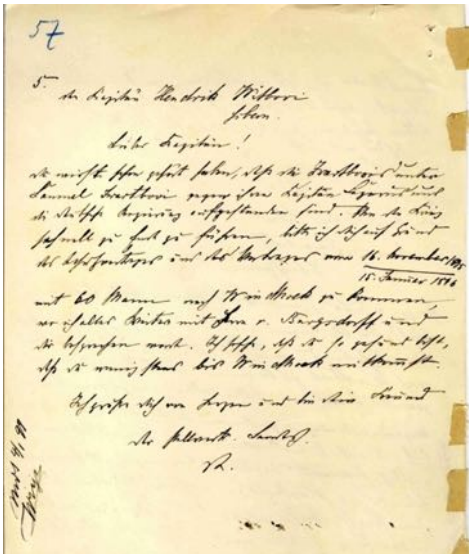 57
5.
An Kapitän Hendrik Witbooi
Gibeon.
Lieber Kapitän!
Du wirst schon gehört haben, daß die Zwartboois unter
Samuel Zwartbooi gegen ihren Kapitän Lazarus und
die deutsche Regierung aufgestanden sind. Um den Krieg
schnell zu Ende zu führen, bitte ich Dich auf Grund
des Schutzvertrages und des Vertrages vom 16. November 1895
15. Januar 1896
mit 60 Mann nach Windhoek zu kommen,
wo ich alles Weitere mit Herrn v. Burgsdorff und
Dir besprechen werde. Ich hoffe, daß Du so gesund bist,
daß Du wenigstens bis Windhoek mitkommst.
Ich grüße Dich von Herzen und bin Dein Freund
Der stellvertr. Landesh.